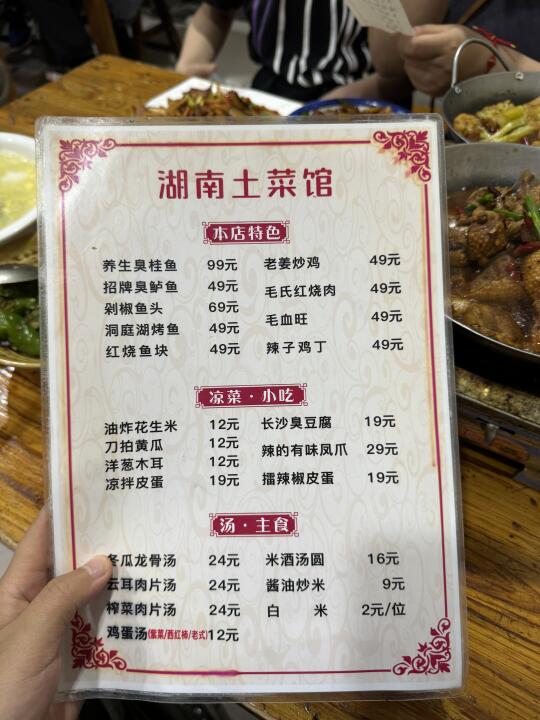 湖南土菜馆
本店特色
养生臭桂鱼 99元 老姜炒鸡 49元
招牌臭鲈鱼 49元 毛氏红烧肉 49元
剁椒鱼头 69元 毛血旺 49元
洞庭湖烤鱼 49元 辣子鸡丁 49元
红烧鱼块 49元
凉菜·小吃
油炸花生米 12元 长沙臭豆腐 19元
刀拍黄瓜 12元 辣的有味凤爪 29元
洋葱木耳 12元 擂辣椒皮蛋 19元
凉拌皮蛋 19元
汤·主食
冬瓜龙骨汤 24元 米酒汤圆 16元
云耳肉片汤 24元 酱油炒米 9元
榨菜肉片汤 24元 白 米 2元/位
鸡蛋汤(紫菜/西红柿/老式) 12元